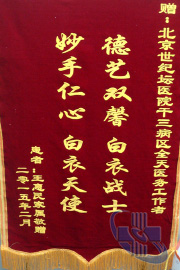 赠：北京世纪坛医院干三病区全天医务工作者
德艺双馨 白衣战士
妙手仁心 白衣天使
患者：王惠民家属敬赠
二零一五年二月